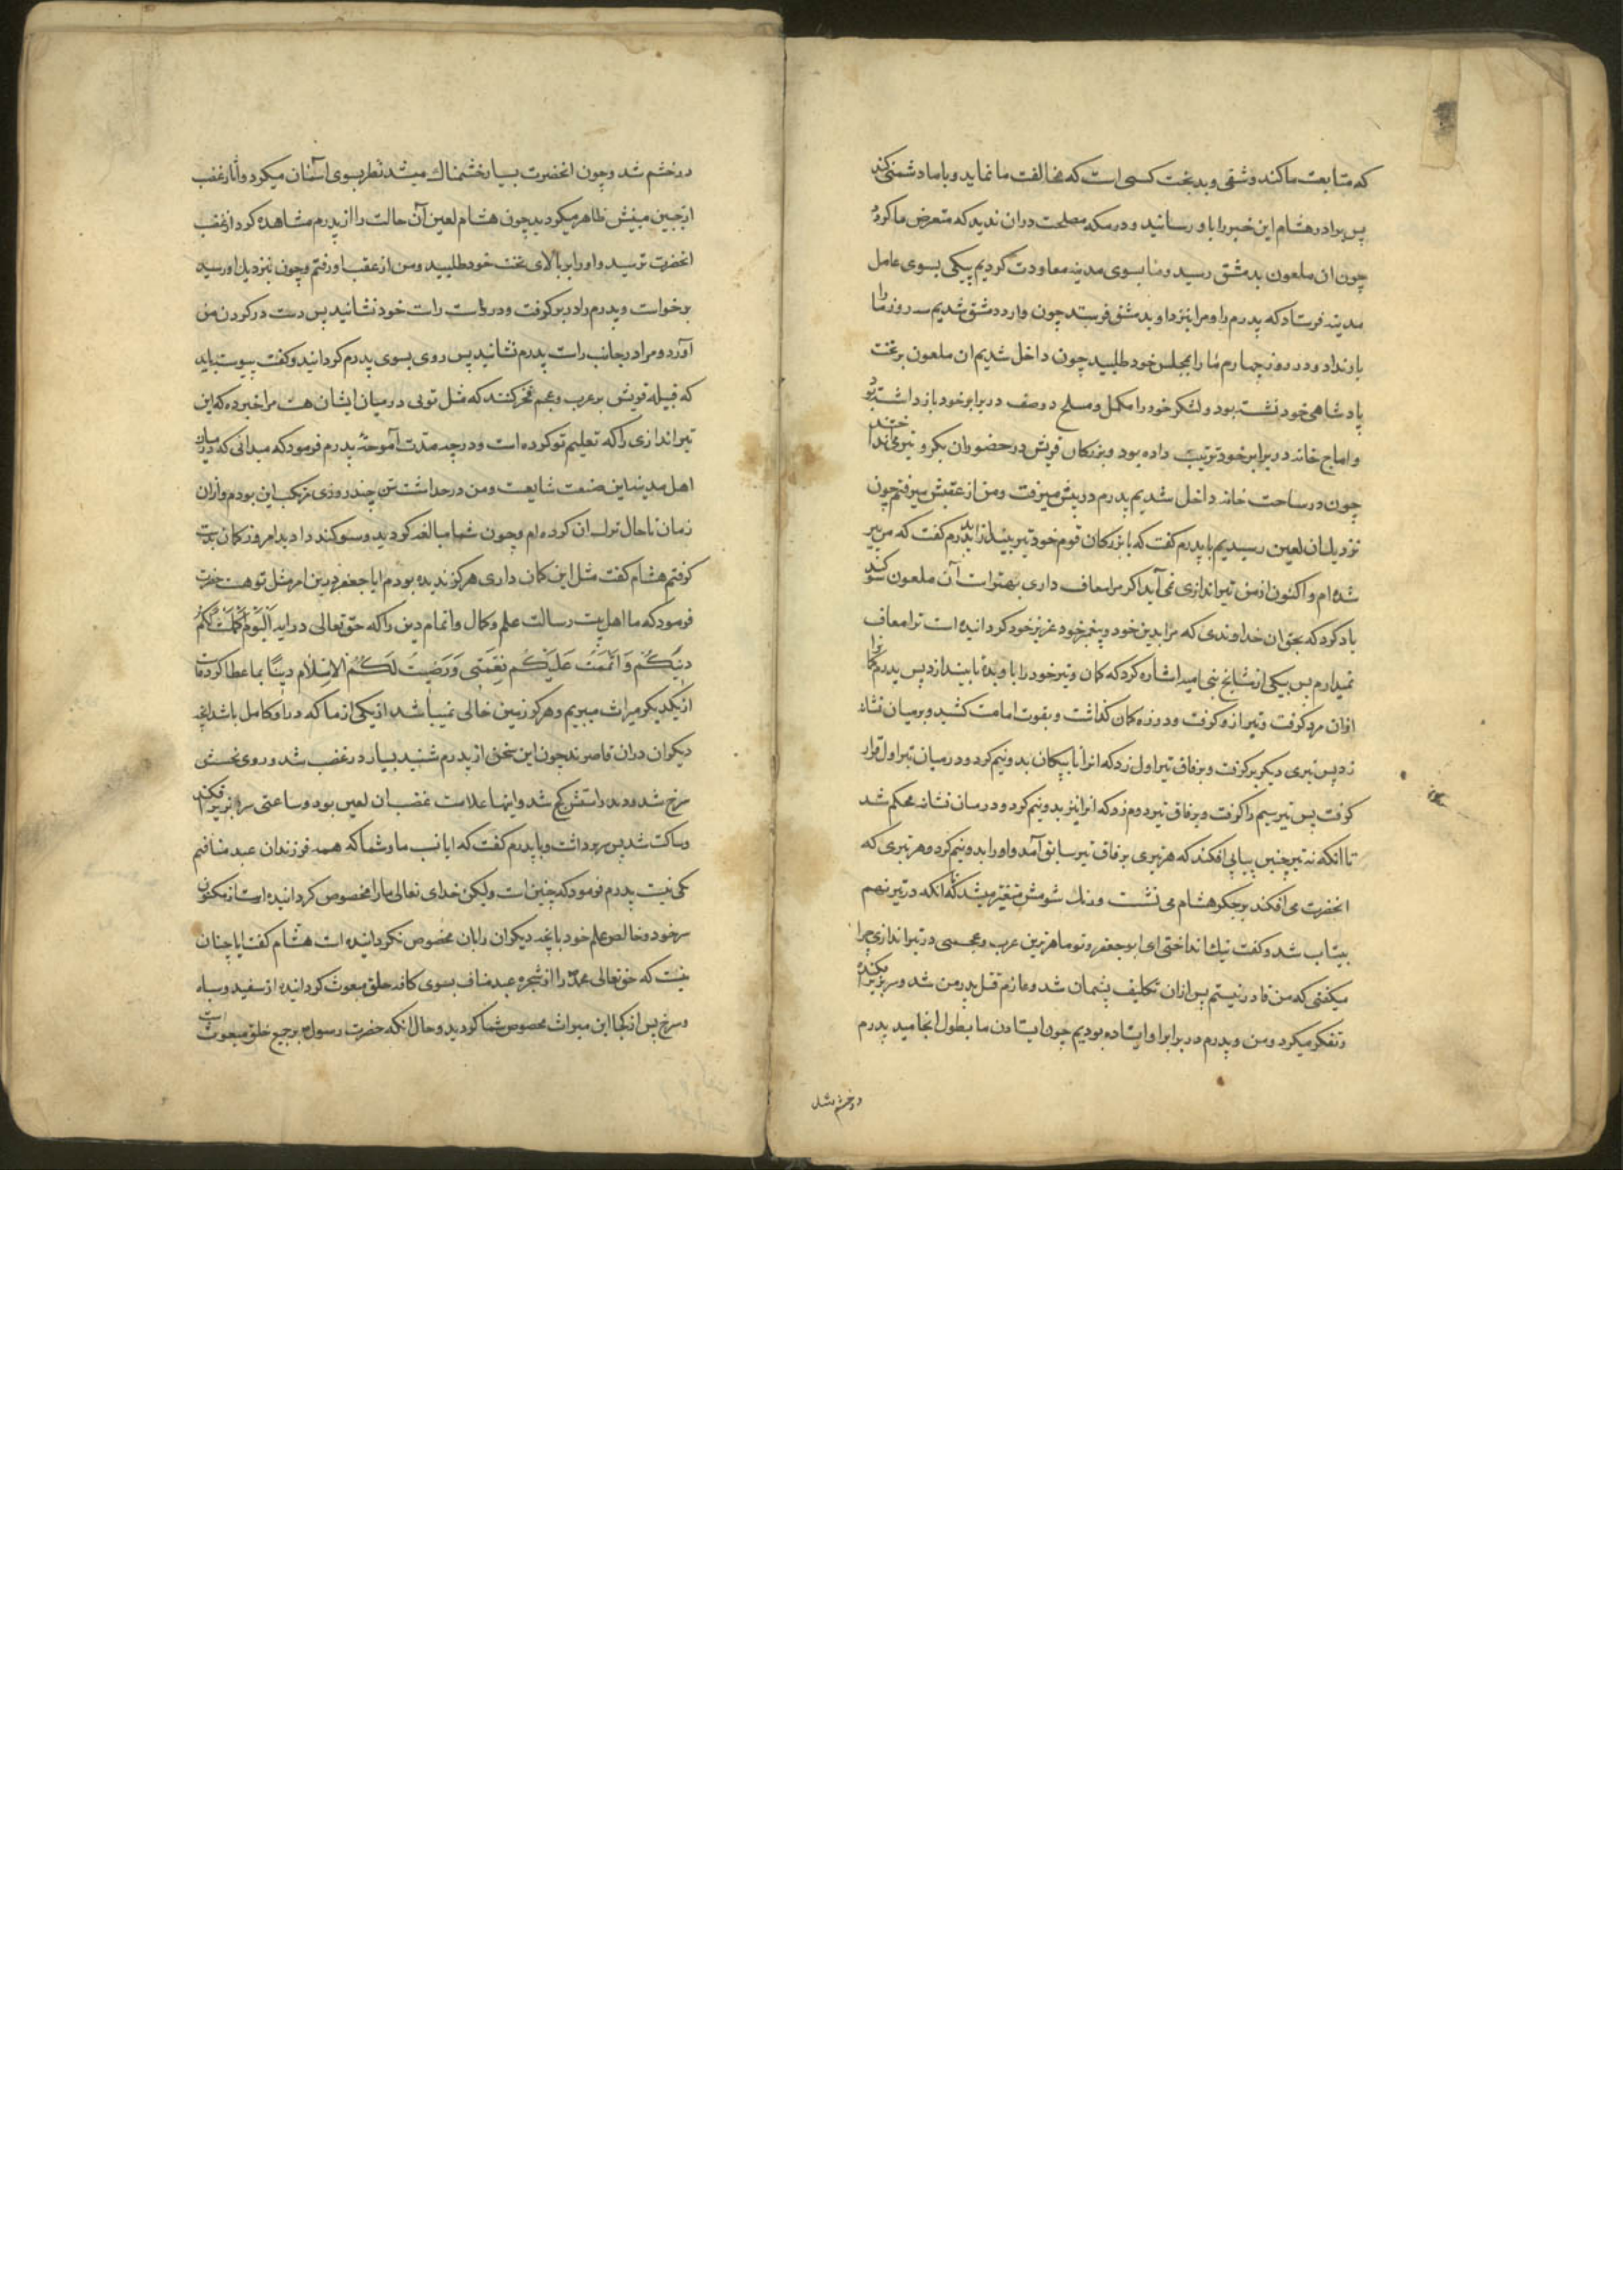 که متابعت ما کند و شقی و بدبخت کسی است که مخالفت ما نماید و با ما دشمنی کند
پس برادر هشام این خبر را باو رسانید و در مکه مصلحت دران ندید که متعرض ما کردد
چون ان ملعون بدمشق رسید و ما بسوی مدینه معاودت کردیم پیکی بسوی عامل
مدینه فرستاد که پدرم را و مرا بنزد او بدمشق فرستد چون وارد دمشق شدیم سه روز ما را
بار نداد و در روز چهارم ما را بمجلس خود طلبید چون داخل شدیم ان ملعون بر تخت
پادشاهی خود نشسته بود و لشکر خود را مکمل و مسلح دو صف در برابر خود بازداشته بود
و اماج خانه در برابر خود ترتیب داده بود و بزرکان قریش در حضور ان بکرو تیر می انداختند
چون در ساحت خانه داخل شدیم پدرم در پیش میرفت و من از عقبش میرفتم چون
نزدیک ان لعین رسیدیم با پدرم کفت که با بزرکان قوم خود تیر بینداز پدرم کفت که من پیر
شده ام و اکنون از من تیراندازی نمی آید اکر مرا معاف داری بهتر است آن ملعون سوکند
یاد کرد که بحق ان خداوندی که مرا بدین خود و پیغمبر خود عزیز خود کردانیده است ترا معاف
نمیدارم پس بیکی از مشایخ بنی امیه اشاره کرد که کمان و تیر خود را باو بده تا بیندازد پس پدرم کمان را
ازان مرد کرفت و تیر ازو کرفت و در زه کمان کذاشت و بقوت امامت کشید و بر میان نشانه
زد پس تیری دیکر بر کرفت و بر فاق تیر اول زد که انرا تا پیکان بدو نیم کرد و در میان تیر اول قرار
کرفت پس تیر سیم را کرفت و بر فاق تیر دوم زد که انرا نیز بدو نیم کرد و در میان نشانه محکم شد
تا انکه نه تیر چنین پیاپی افکند که هر تیری بر فاق تیر سابق آمد و او را بدو نیم کرد و هر تیری که
انحضرت می افکند بر جکر هشام می نشست و رنک شومش متغیر میشد تا انکه در تیر نهم
بیتاب شد و کفت نیک انداختی ای ابو جعفر و تو ماهرترین عرب و عجمی در تیراندازی چرا
میکفتی که من قادر نیستم پس ازان تکلیف پشیمان شد و عازم قتل پدر من شد و سر بزیر افکنده
و تفکر میکرد و من و پدرم در برابر او ایستاده بودیم چون ایستادن ما بطول انجامید پدرم
در خشم شد
در خشم شد و چون انحضرت بسیار خشمناک میشد نظر بسوی اسمان میکرد و اثار غضب
از جبین مبینش ظاهر میکردید چون هشام لعین آن حالت را از پدرم مشاهده کرد از غضب
انحضرت ترسید و او را بر بالای تخت خود طلبید و من از عقب او رفتم و چون بنزدیک او رسید
برخواست و پدرم را در بر کرفت و در دست راست خود نشانید پس دست در کردن من
آورد و مرا در جانب راست پدرم نشانید پس روی بسوی پدرم کردانید و کفت پیوسته باید
که قبیله قریش بر عرب و عجم فخر کنند که مثل توئی در میان ایشان هست مرا خبر ده که این
تیراندازی را که تعلیم تو کرده است و در چه مدت آموخته پدرم فرمود که میدانی که در میان
اهل مدینه این صنعت شایعست و من در حداثت سن چند روزی مرتکب این بودم و ازان
زمان تا حال ترک ان کرده ام و چون شما مبالغه کردید و سوکند دادید امروز کمان بدست
کرفتم هشام کفت مثل این کمان داری هرکز ندیده بودم ایا جعفر درین امر مثل تو هست حضرت
فرمود که ما اهل بیت رسالت علم و کمال و اتمام دین را که حق تعالی در ایه اَلْیَوْمَ اَکْمَلْتُ لَکُمْ
دینَکُمْ وَ اَتْمَمْتُ عَلَیْکُم نِعْمَتی وَ رَضیتُ لَکُمُ الاِسْلامَ دینًا بما عطا کرده
از یکدیکر میراث میبریم و هرکز زمین خالی نمیباشد از یکی از ما که در او کامل باشد انچه
دیکران دران قاصرند چون این سخن از پدرم شنید بسیار در غضب شد و روی نحسش
سرخ شد و دیده راستش کج شد و اینها علامت غضب ان لعین بود و ساعتی سر بزیر افکند
و ساکت شد پس سر برداشت و با پدرم کفت که ایا نسب ما و شما که همه فرزندان عبد منافیم
یکی نیست پدرم فرمود که چنین است ولیکن خدای تعالی ما را مخصوص کردانیده است از مکنون
سر خود و خالص علم خود بانچه دیکران را بان مخصوص نکردانیده است هشام کفت ایا چنان
نیست که حق تعالی محمد را از شجره عبد مناف بسوی کافه خلق مبعوث کردانیده از سفید و سیاه
و سرخ پس از کجا این میراث مخصوص شما کردید و حال انکه حضرت رسول بر جمیع خلق مبعوث است